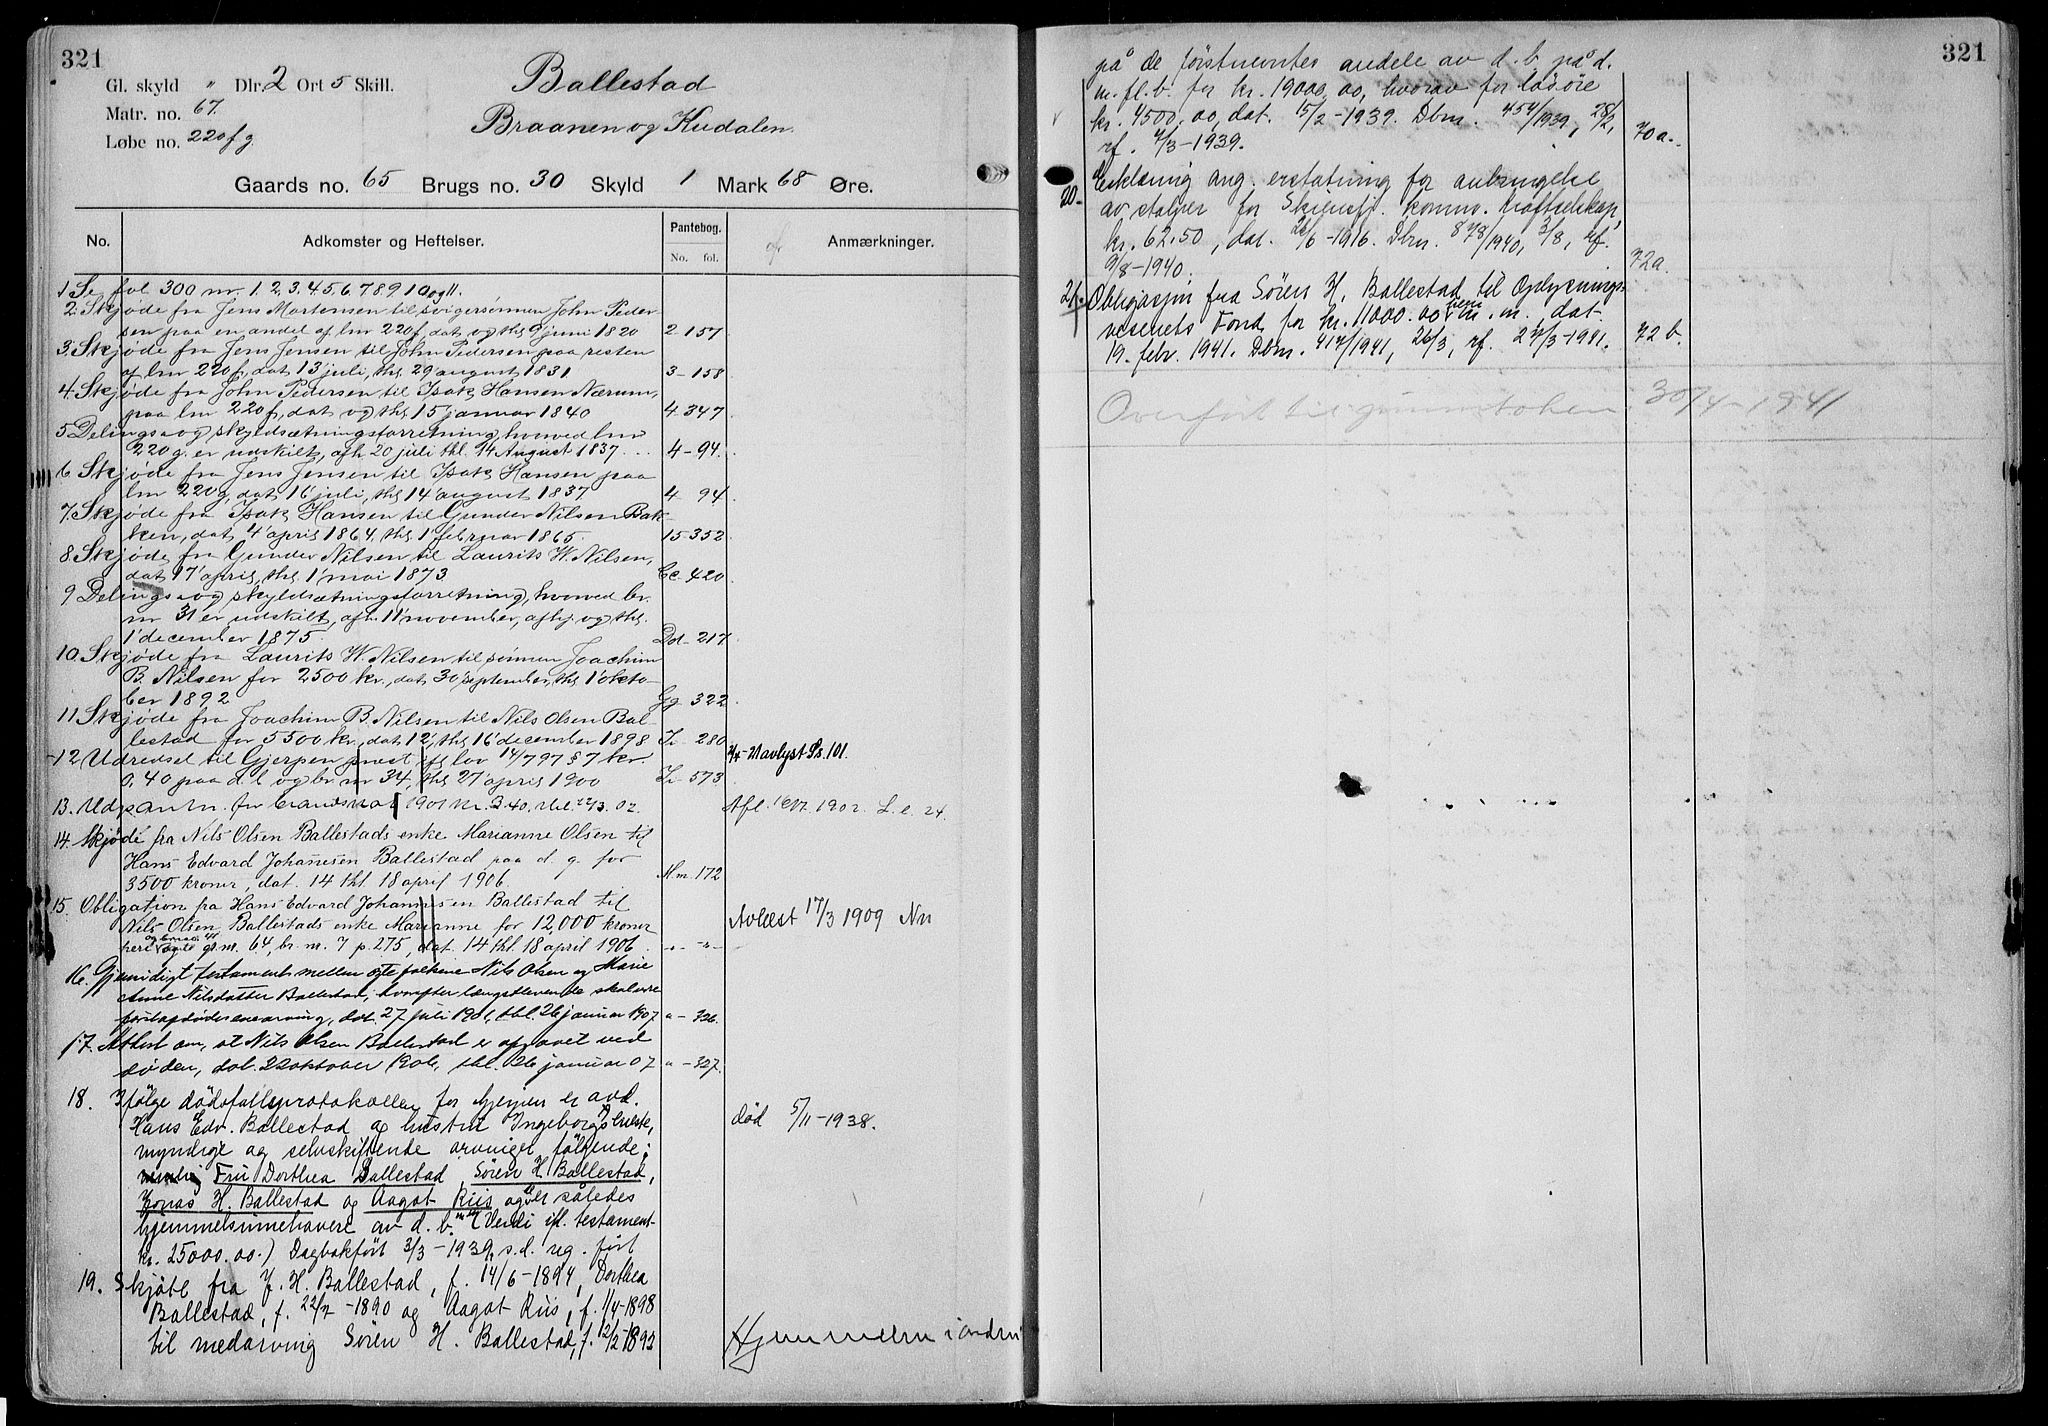 321
Gl. skyld " Dlr. 2 Ort 5 Skill.
Matr. no. 67.
Løbe no. 220 f g.
Ballestad
Braanen og Kudalen.
Gaards no. 65 Brugs no. 30 Skyld 1 Mark 68 Øre.
No. Adkomster og Heftelser. Pantebog. No. fol. Anmærkninger.
1 Se fol 300 nr. 1. 2. 3. 4. 5. 6. 7 8 9 10 og 11.
2. Skjøde fra Jens Mortensen til svigersønnen John Peder-
sen paa en andel af lnr 220 f, dat og thl 9 juni 1820 2 157
3. Skjøde fra Jens Jensen til John Pedersen paa resten
af lnr 220 f, dat 13 juli, thl 29 august 1831 3 - 158
4. Skjøde fra John Pedersen til Isak Hansen Nærum,
paa lnr 220 f, dat og thl 15 januar 1840 4 347
5 Delings- og skyldsætningsforretning, hvorved lnr
220 g. er udskilt, afh 20 juli thl. 14 August 1837 . . . 4 - 94.
6 Skjøde fra Jens Jensen til Isak Hansen paa
lnr 220 g, dat 16 juli, thl 14 august 1837 4 94
7. Skjøde fra Isak Hansen til Gunder Nilsen Bak-
ken, dat 4 april 1864, thl 1 februar 1865. 15 - 352
8. Skjøde fra Gunder Nilsen til Laurits W. Nilsen,
dat 17 april, thl 1 mai 1873 Cc. 420
9 Delings- og skyldsætningsforretning, hvorved br.
nr 31 er udskilt, afh. 11 november, afhj og thl.
1 december 1875. Dd - 217
10. Skjøde fra Laurits W. Nilsen til sønnen Joachim
B. Nilsen for 2500 kr., dat 30 september, thl 1 okto-
ber 1892 Gg 322
11. Skjøde fra Joachim B. Nilsen til Nils Olsen Bal-
lestad for 5500 kr., dat 12, thl 16 december 1898 280
12 Udredsel til Gjerpen prest, efl lov 14/7 97 § 7 kr.
0,40 paa d. l og br. nr 34, thl 27 april 1900 573 avlyst 101.
13. Udpantn. for 1901 kr. 3.40. thl. 02. Afl. 1902. L. l. 24.
14. Skjøde fra Nils Olsen Ballestads enke Marianne Olsen til
Hans Edvard Johannesen Ballestad paa d. g. for
3500 kroner, dat. 14 thl. 18 april 1906. M.m. 172
15. Obligation fra Hans Edvard Johannesen Ballestad til
Nils Olsen Ballestads enke Marianne for 12,000 kroner
heri gr.nr. 64, br. nr. 7 p. 275, dat. 14 thl. 18 april 1906 . - " - Avlæst 17/3 1909 Nn
16. Gjensidigt testament mellem ægtefolkene Nils Olsen og Marie
Anne Nilsdatter Ballestad, hvorefter længstlevende skal være
førstafdødes enearving, dat. 27 juli 1901, thl. 26 januar 1907 " - 326.
17. Attest om, at Nils Olsen Ballestad er afgaaet ved
døden, dat. 22 oktober 1906, thl. 26 januar 07 " - 327.
18. Ifølge dødsfallsprotokollen for Gjerpen er avd.
Hans Edv. Ballestad og hustru Ingeborgs eneste,
myndige og selvskiftende arvinger følgende:
nemlig Fru Dorthea Ballestad, Søren H. Ballestad,
Jonas H. Ballestad og Aagot Riis og er således
hjemmelsinnehavere av d. b. (Verdi ifl. testament
kr. 25000.00.) Dagbokført 3/3 - 1939, s. d. reg. ført
død 5/11 - 1938.
19. Skjøte fra J. H. Ballestad, f. 14/6 - 1894, Dorthea
Ballestad, f. 22/7 - 1890 og Aagot Riis, f. 1/4 - 1898
til medarving Søren H. Ballestad, f. 12/2 - 1893
Hjemmelen i orden
321
på de førstnevntes andele av d. b. på d.
m. fl. b. for kr. 19000,00, hvorav for løsøre
kr. 4500,00, dat. 15/2 - 1939. Dbnr. 454/1939, 28/2,
rf. 7/3 - 1939. 70a.
20. Erklæring ang. erstatning for anbringelse
av stolper for Skiensfj. komm. kraftselskap,
kr. 62.50, dat. 26/6 - 1916. Dbnr. 878/1940, 3/8, rf.
9/8 - 1940. 72a.
21. Obligasjon fra Søren H. Ballestad til Oplysnings-
vesenets Fond for kr. 11000.00 heri m. m. dat.
19. febr. 1941. Dbnr. 417/1941, 26/3, rf. 27/3 - 1941. 72 b.
Overført til grunnboken 30/4 - 1941